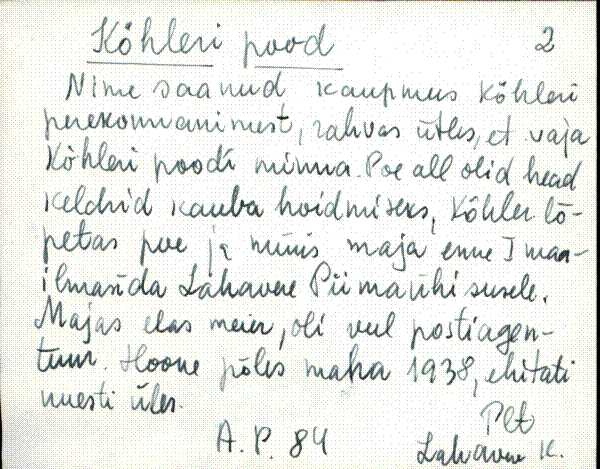 Köhleri pood 2
Nime saanud kaupmus Köhleri
perekonnanimest, rahvas ütles, et vaja
Köhleri poodi minna. Poe all olid head
keldrid kauba hoidmiseks, Köhler lõ-
petas poe ja müüs maja enne I maa-
ilmasõda Lahavere Piimaühisusele.
Majas elas meier, oli veel postiagen-
tuur. Hoone põles maha 1938, ehitati
uuesti üles.
A. P. 84 Plt
Lahavere k.